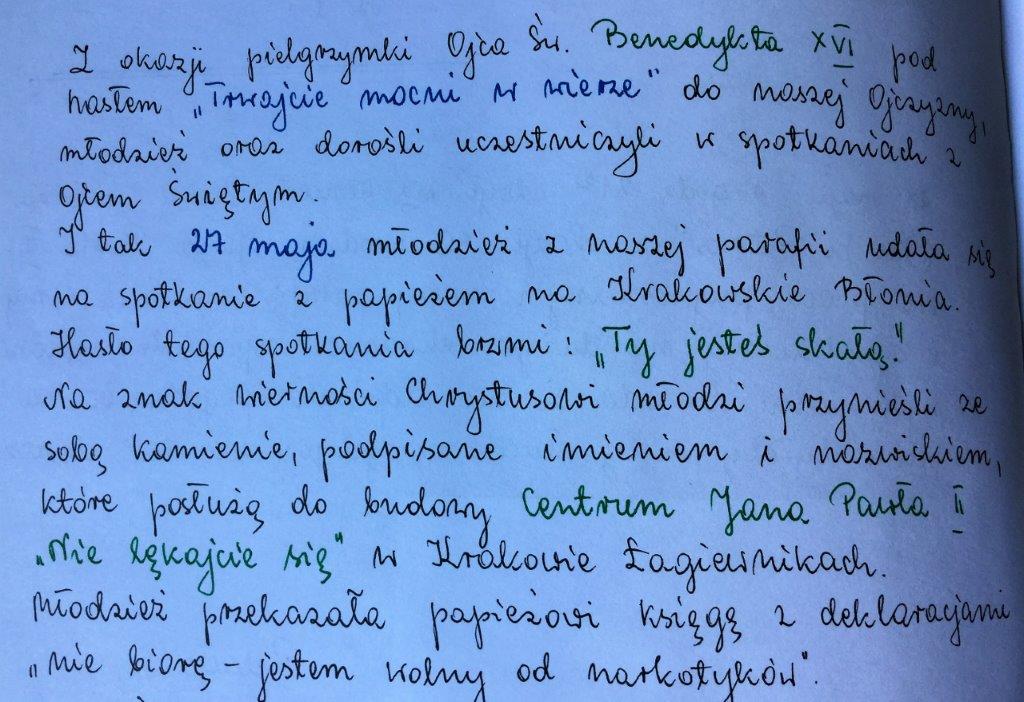 Z okazji pielgrzymki Ojca Św. Benedykta XVI pod
hasłem „Trwajcie mocni w wierze" do naszej Ojczyzny,
młodzież oraz dorośli uczestniczyli w spotkaniach z
Ojcem Świętym.
I tak 27 maja młodzież z naszej parafii udała się
na spotkanie z papieżem na Krakowskie Błonia.
Hasło tego spotkania brzmi: „Ty jesteś skałą."
Na znak wierności Chrystusowi młodzi przynieśli ze
sobą kamienie, podpisane imieniem i nazwiskiem,
które posłużą do budowy Centrum Jana Pawła II
„Nie lękajcie się" w Krakowie Łagiewnikach.
Młodzież przekazała papieżowi księgę z deklaracjami
„nie biorę – jestem wolny od narkotyków".